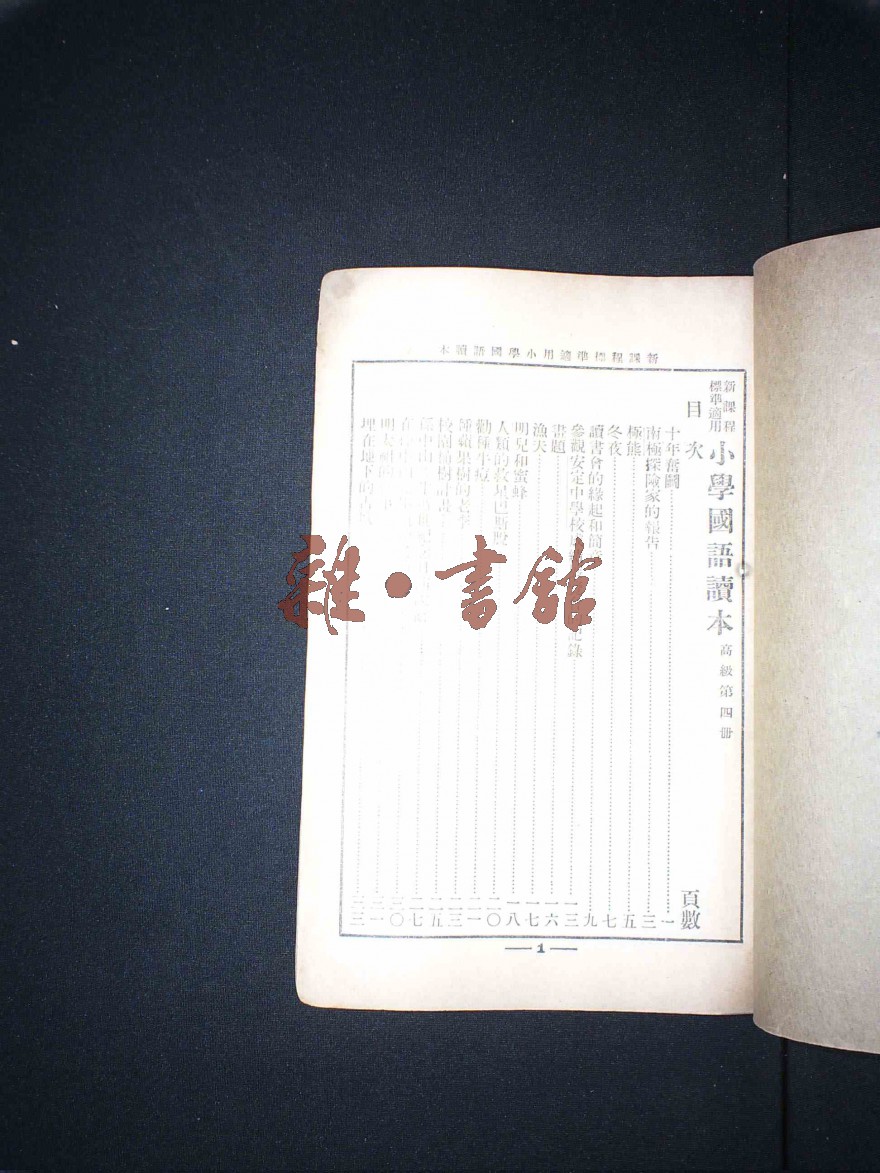 新課程標準適用小學國語讀本
新課程
標準適用
小學國語讀本
高級第四冊
目次
頁數
十年奮鬭 一
南極探險家的報告 三
極熊 五
冬夜 七
讀書會的緣起和簡 九
參觀安定中學校 記錄 一三
畫題 一六
漁夫 一七
明兒和蜜蜂 一八
人類的救星巴斯股 二〇
勸種牛痘 二一
種蘋果樹的老李 二三
校園插樹計畫 二五
孫中山 二七
三〇
三一
埋在地下的古 三三
1
雜·書館